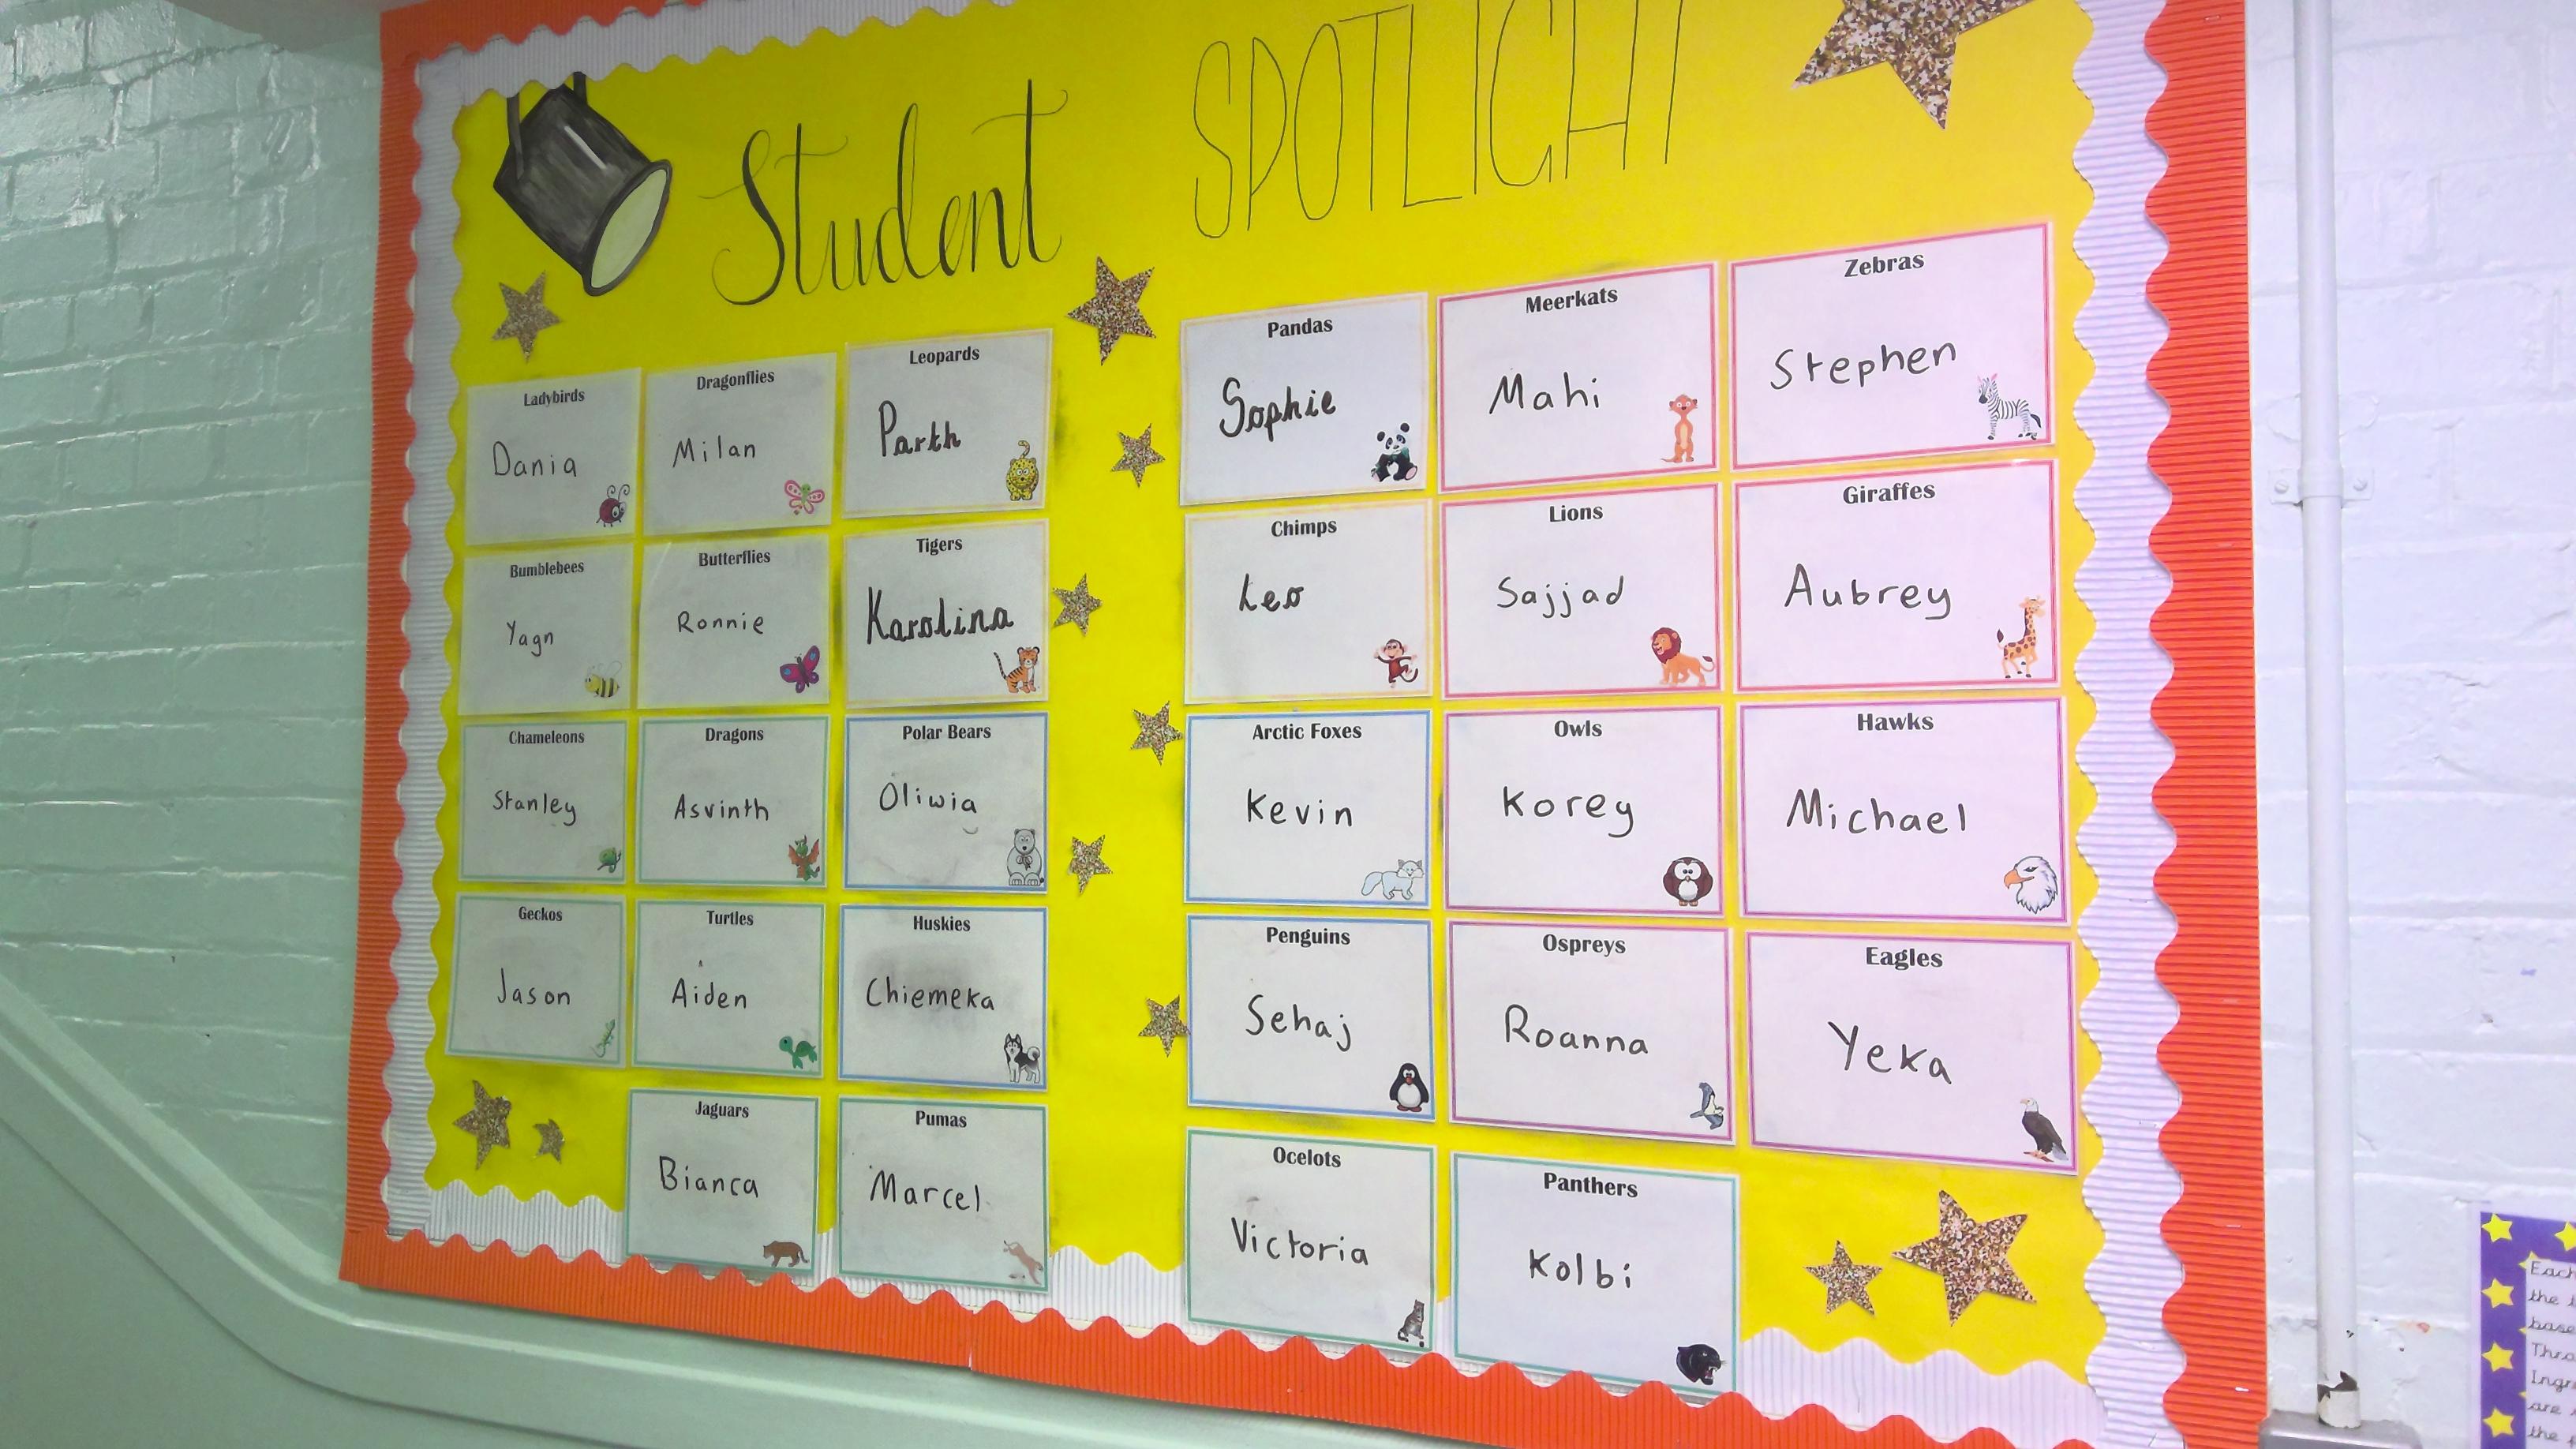 Student SPOTLIGHT
Ladybirds
Dania
Dragonflies
Milan
Leopards
Parth
Pandas
Sophie
Meerkats
Mahi
Zebras
Stephen
Bumblebees
Yagn
Butterflies
Ronnie
Tigers
Karolina
Chimps
Leo
Lions
Sajjad
Giraffes
Aubrey
Chameleons
Stanley
Dragons
Asvinth
Polar Bears
Oliwia
Arctic Foxes
Kevin
Owls
Korey
Hawks
Michael
Geckos
Jason
Turtles
Aiden
Huskies
Chiemeka
Penguins
Sehaj
Ospreys
Roanna
Eagles
Yeka
Jaguars
Bianca
Pumas
Marcel
Ocelots
Victoria
Panthers
Kolbi
Each
the
base
are
the